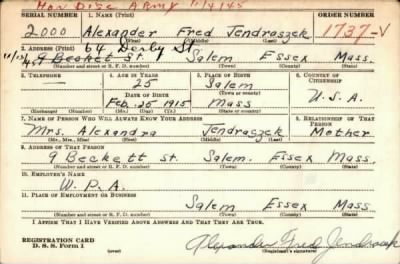 Hon Disc Army 11/4/45
SERIAL NUMBER 1. NAME (Print) ORDER NUMBER
2000 Alexander Fred Jendraszek 1737-V
(First) (Middle) (Last)
2. ADDRESS (Print) 64 Derby St
9 Becket St. Salem Essex Mass.
(Number and street or R. F. D. number) (Town) (County) (State)
3. TELEPHONE 4. AGE IN YEARS 5. PLACE OF BIRTH 6. COUNTRY OF CITIZENSHIP
— 25 Salem
(Town or county)
DATE OF BIRTH
Feb. 25 1915 Mass U.S.A.
(Exchange) (Number) (Mo.) (Day) (Yr.) (State or country)
7. NAME OF PERSON WHO WILL ALWAYS KNOW YOUR ADDRESS 8. RELATIONSHIP OF THAT PERSON
Mrs. Alexandra Jendraszek Mother
(Mr., Mrs., Miss) (First) (Middle) (Last)
9. ADDRESS OF THAT PERSON
9 Beckett st. Salem. Essex Mass.
(Number and street or R. F. D. number) (Town) (County) (State)
10. EMPLOYER'S NAME
W.P.A.
11. PLACE OF EMPLOYMENT OR BUSINESS
Salem Essex Mass
(Number and street or R. F. D. number) (Town) (County) (State)
I AFFIRM THAT I HAVE VERIFIED ABOVE ANSWERS AND THAT THEY ARE TRUE.
REGISTRATION CARD
D. S. S. Form 1 (over) Alexander Fred Jendraszek
(Registrant's signature)